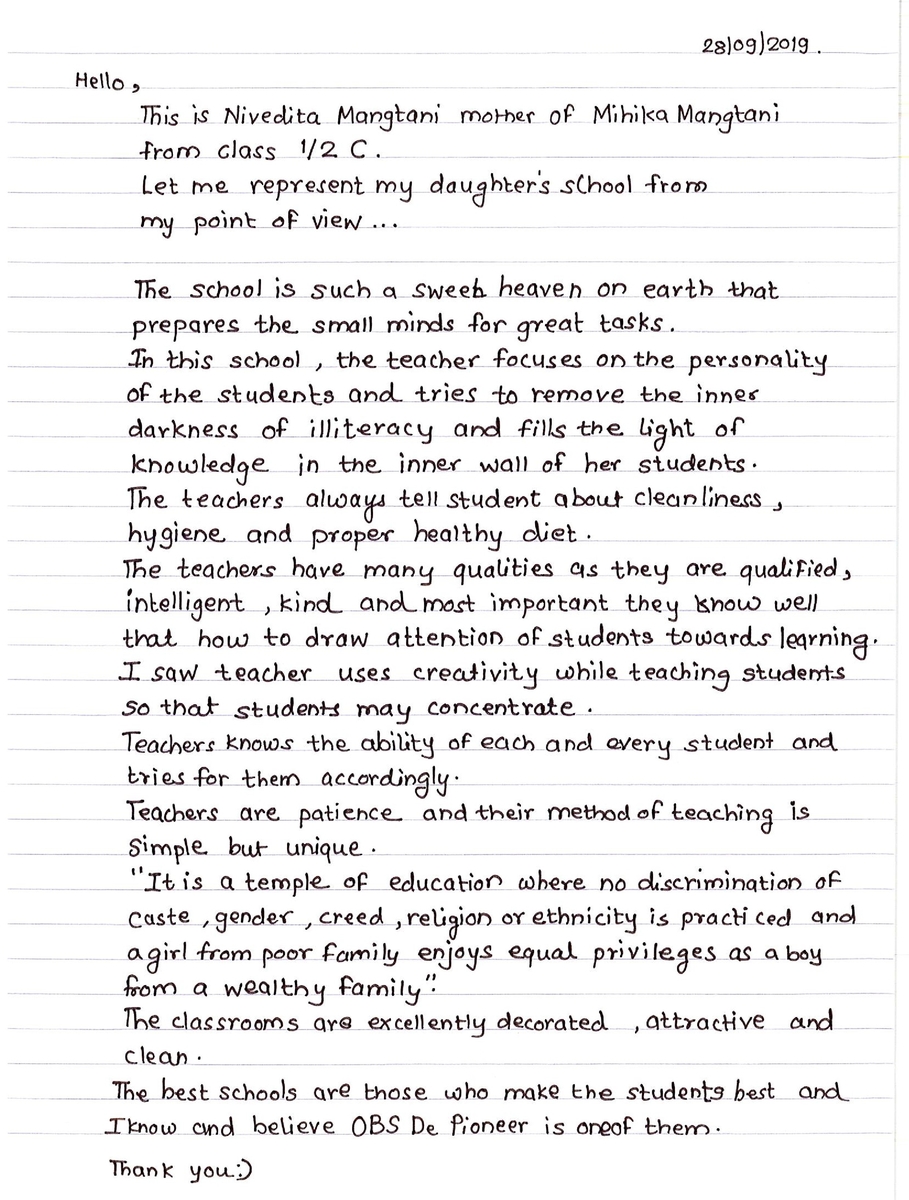 28/09/2019.
Hello,
This is Nivedita Mangtani mother of Mihika Mangtani
from class 1/2 C.
Let me represent my daughter's school from
my point of view...
The school is such a sweet heaven on earth that
prepares the small minds for great tasks.
In this school, the teacher focuses on the personality
of the students and tries to remove the inner
darkness of illiteracy and fills the light of
knowledge in the inner wall of her students.
The teachers always tell student about cleanliness,
hygiene and proper healthy diet.
The teachers have many qualities as they are qualified,
intelligent, kind and most important they know well
that how to draw attention of students towards learning.
I saw teacher uses creativity while teaching students
so that students may concentrate.
Teachers knows the ability of each and every student and
tries for them accordingly.
Teachers are patience and their method of teaching is
simple but unique.
"It is a temple of education where no discrimination of
caste, gender, creed, religion or ethnicity is practiced and
a girl from poor family enjoys equal privileges as a boy
from a wealthy family".
The classrooms are excellently decorated, attractive and
clean.
The best schools are those who make the students best and
I know and believe OBS De Pioneer is one of them.
Thank you:)